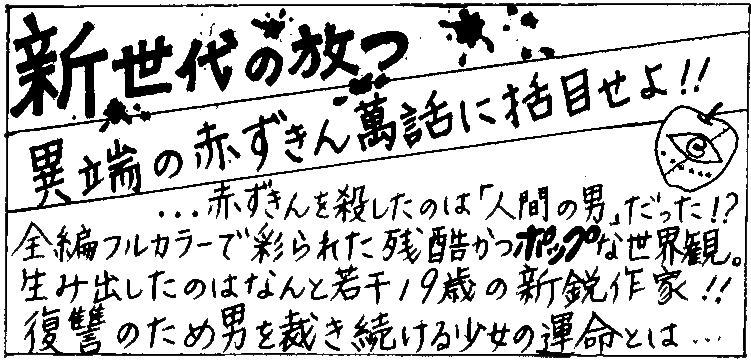 新世代の放つ
異端の赤ずきん萬話に括目せよ!!
...赤ずきんを殺したのは「人間の男」だった!?
全編フルカラーで彩られた残酷かつポップな世界観。
生み出したのはなんと若干19歳の新鋭作家!!
復讐のため男を裁き続ける少女の運命とは...